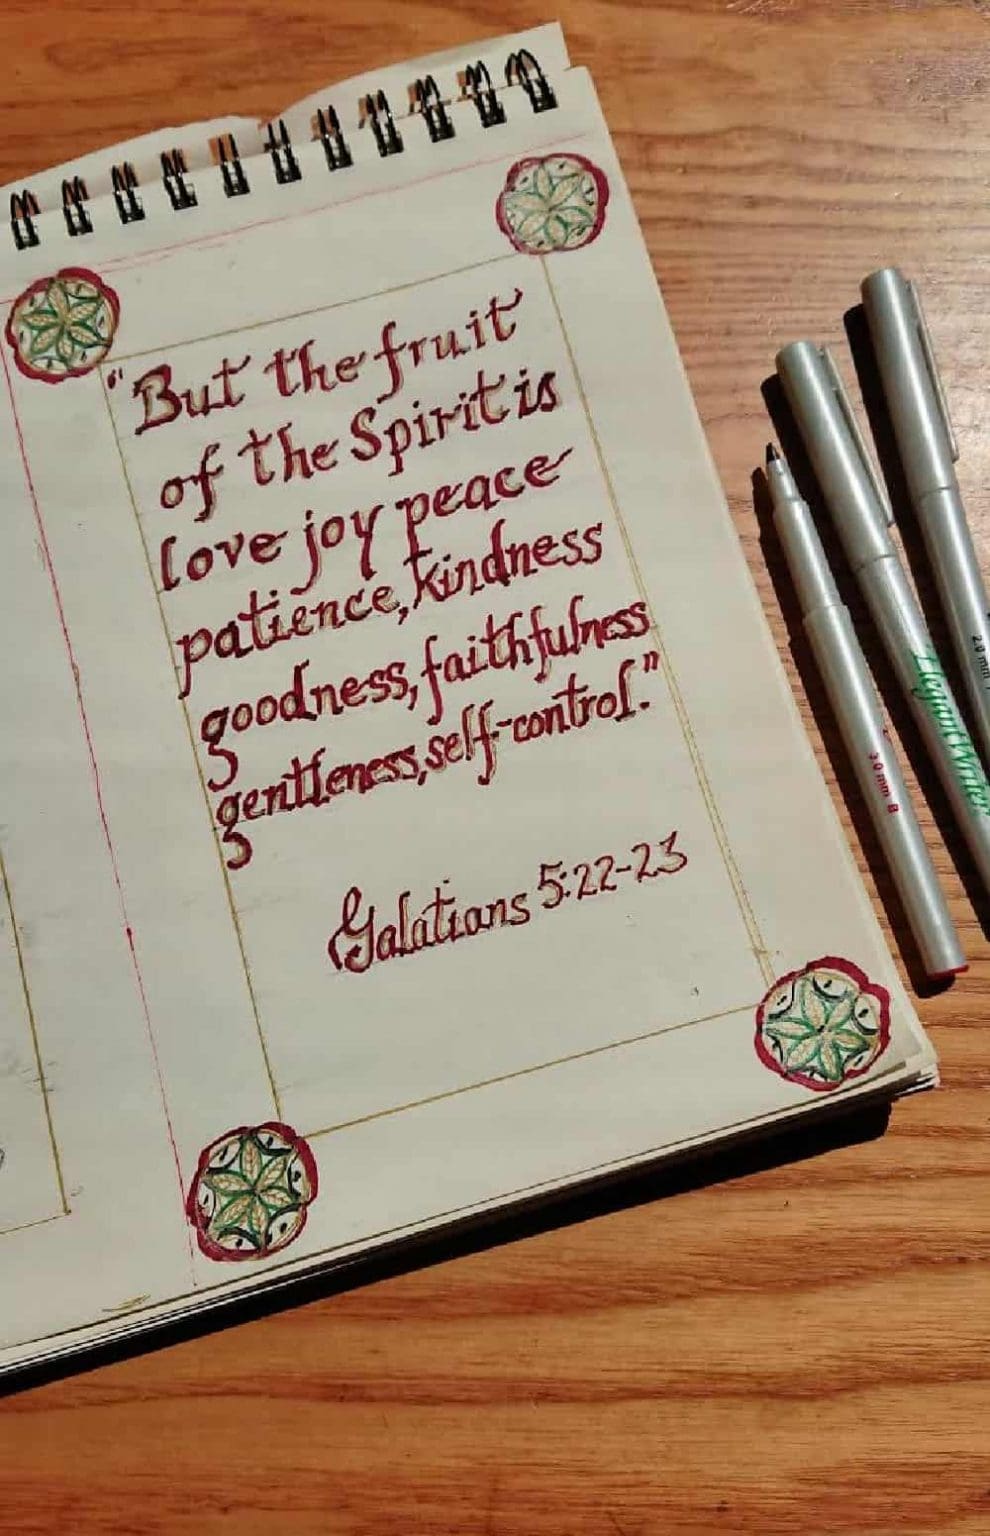 “But the fruit
of the Spirit is
love joy peace
patience, kindness
goodness, faithfulness
gentleness, self-control.”
Galatians 5:22-23
2.0 mm
Elegant Writer
3.0 mm